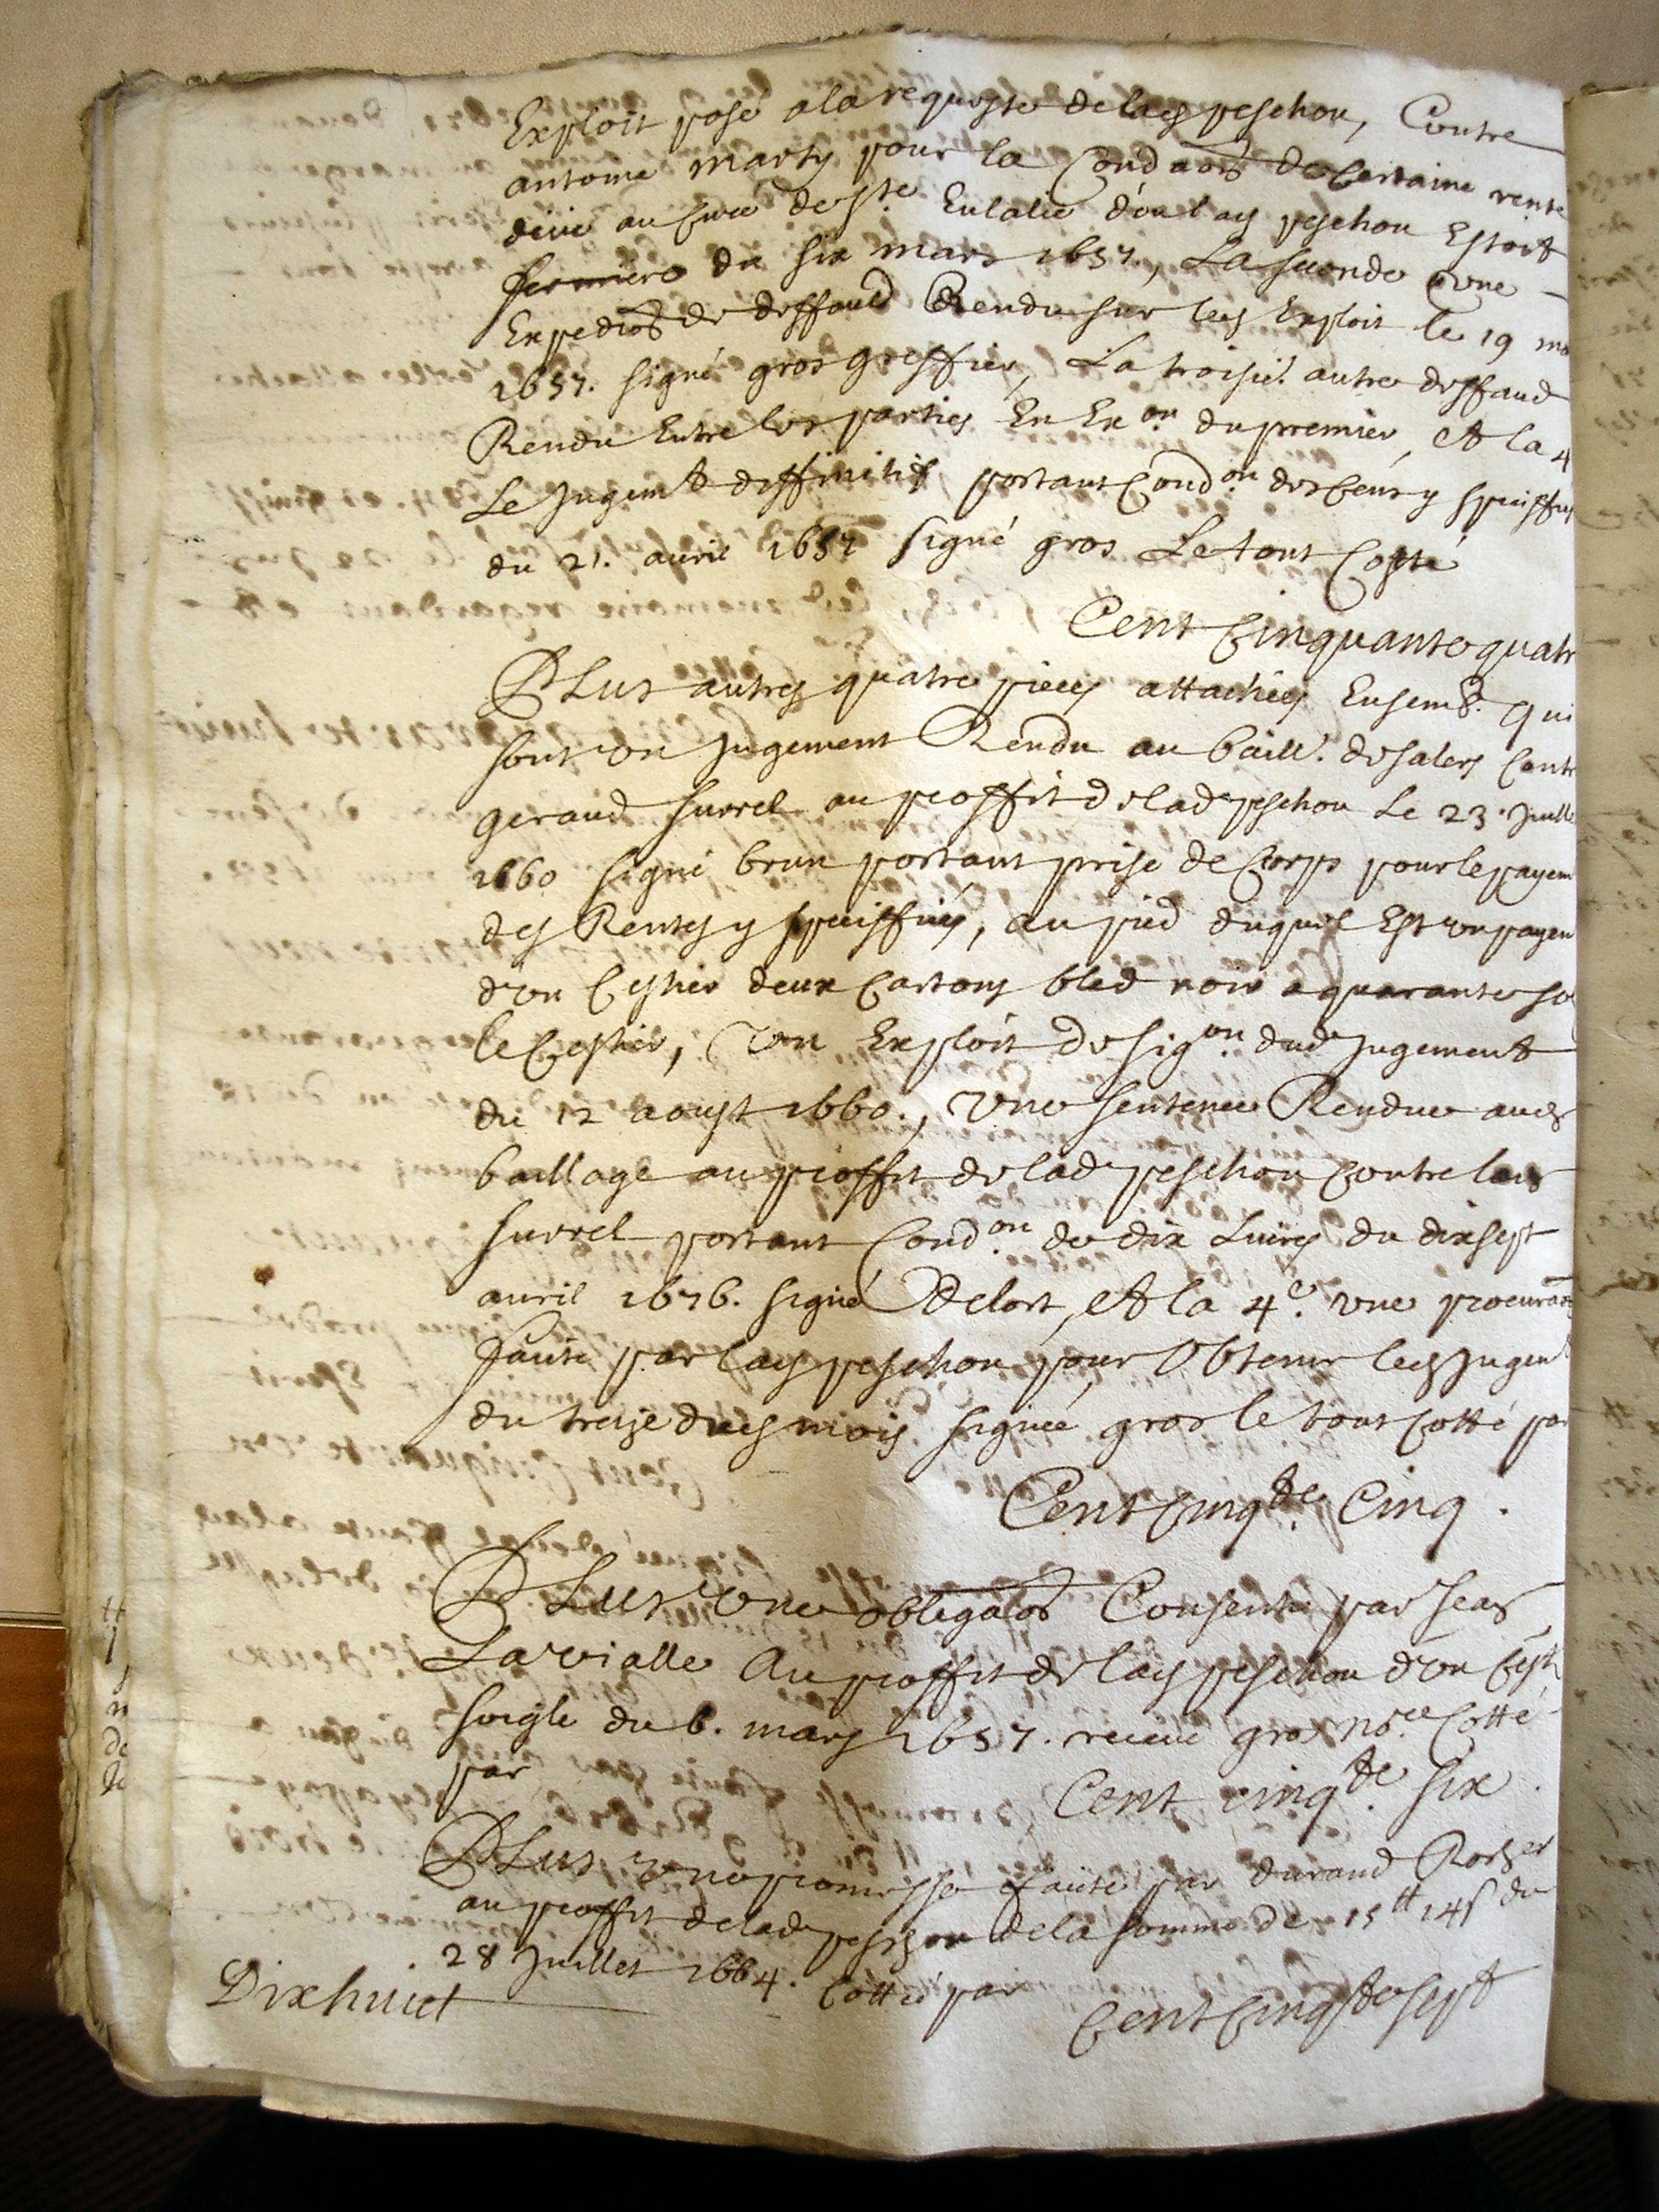 Exploit posé a la requeste de lad peschou, Contre
antoine marty pour la Condaõn de Certaine rente
deüe au Curé de Ste Eulalie dou lad peschou Estoit
fermiere du six mars 1657., La seconde Une
Expediõn de deffaud Rendu sur led Exploit le 19
1657. signé gros greffier, La troisie. autre deffaud
Rendu Entre les parties En Exon du premier, Et la 4
Le Jugemt deffinitif portant Condon des Cens y speciffies
du 21. auril 1657 signé gros Le tout Cotté
Cent Cinquante quatr
PLus autres quatre pieces attachées Ensemb. qui
sont un Jugement Rendu au baill. de salers Contr
geraud surrel au proffit de lade peschou Le 23. Juille
1660 signé brun portant prise de Corps pour le payem
des Rentes y speciffiées, au pied duquel Est un payem
d'un Cestier deux Cartons bled noir a quarante so
le Cestier, Un Exploit de sigon dud Jugement
du 12 aoust 1660., Une sentence Rendue aud
baillage au proffit de lade peschou Contre led
surrel portant Condon de dix Liures du dixsept
auril 1676. signé Delort, Et la 4e. une procuraõn
faite par lad peschou pour Obtenir led Jugemt
du treize dud mois signée gros le tout Cotté par
Cent Cinqte Cinq.
PLus Une obligaõn Consentie par Jean
Lavialle Au proffit de lad peschou d'un Cest
seigle du 6. mars 1657. receue gros nore Cotté
par
Cent cinqte six.
PLus Une promesse faite par durand
au proffit de lade peschou de la somme de 15tt 14s du
28 Juillet 1664. Cotté par
Cent Cinqte sept
Dixhuict